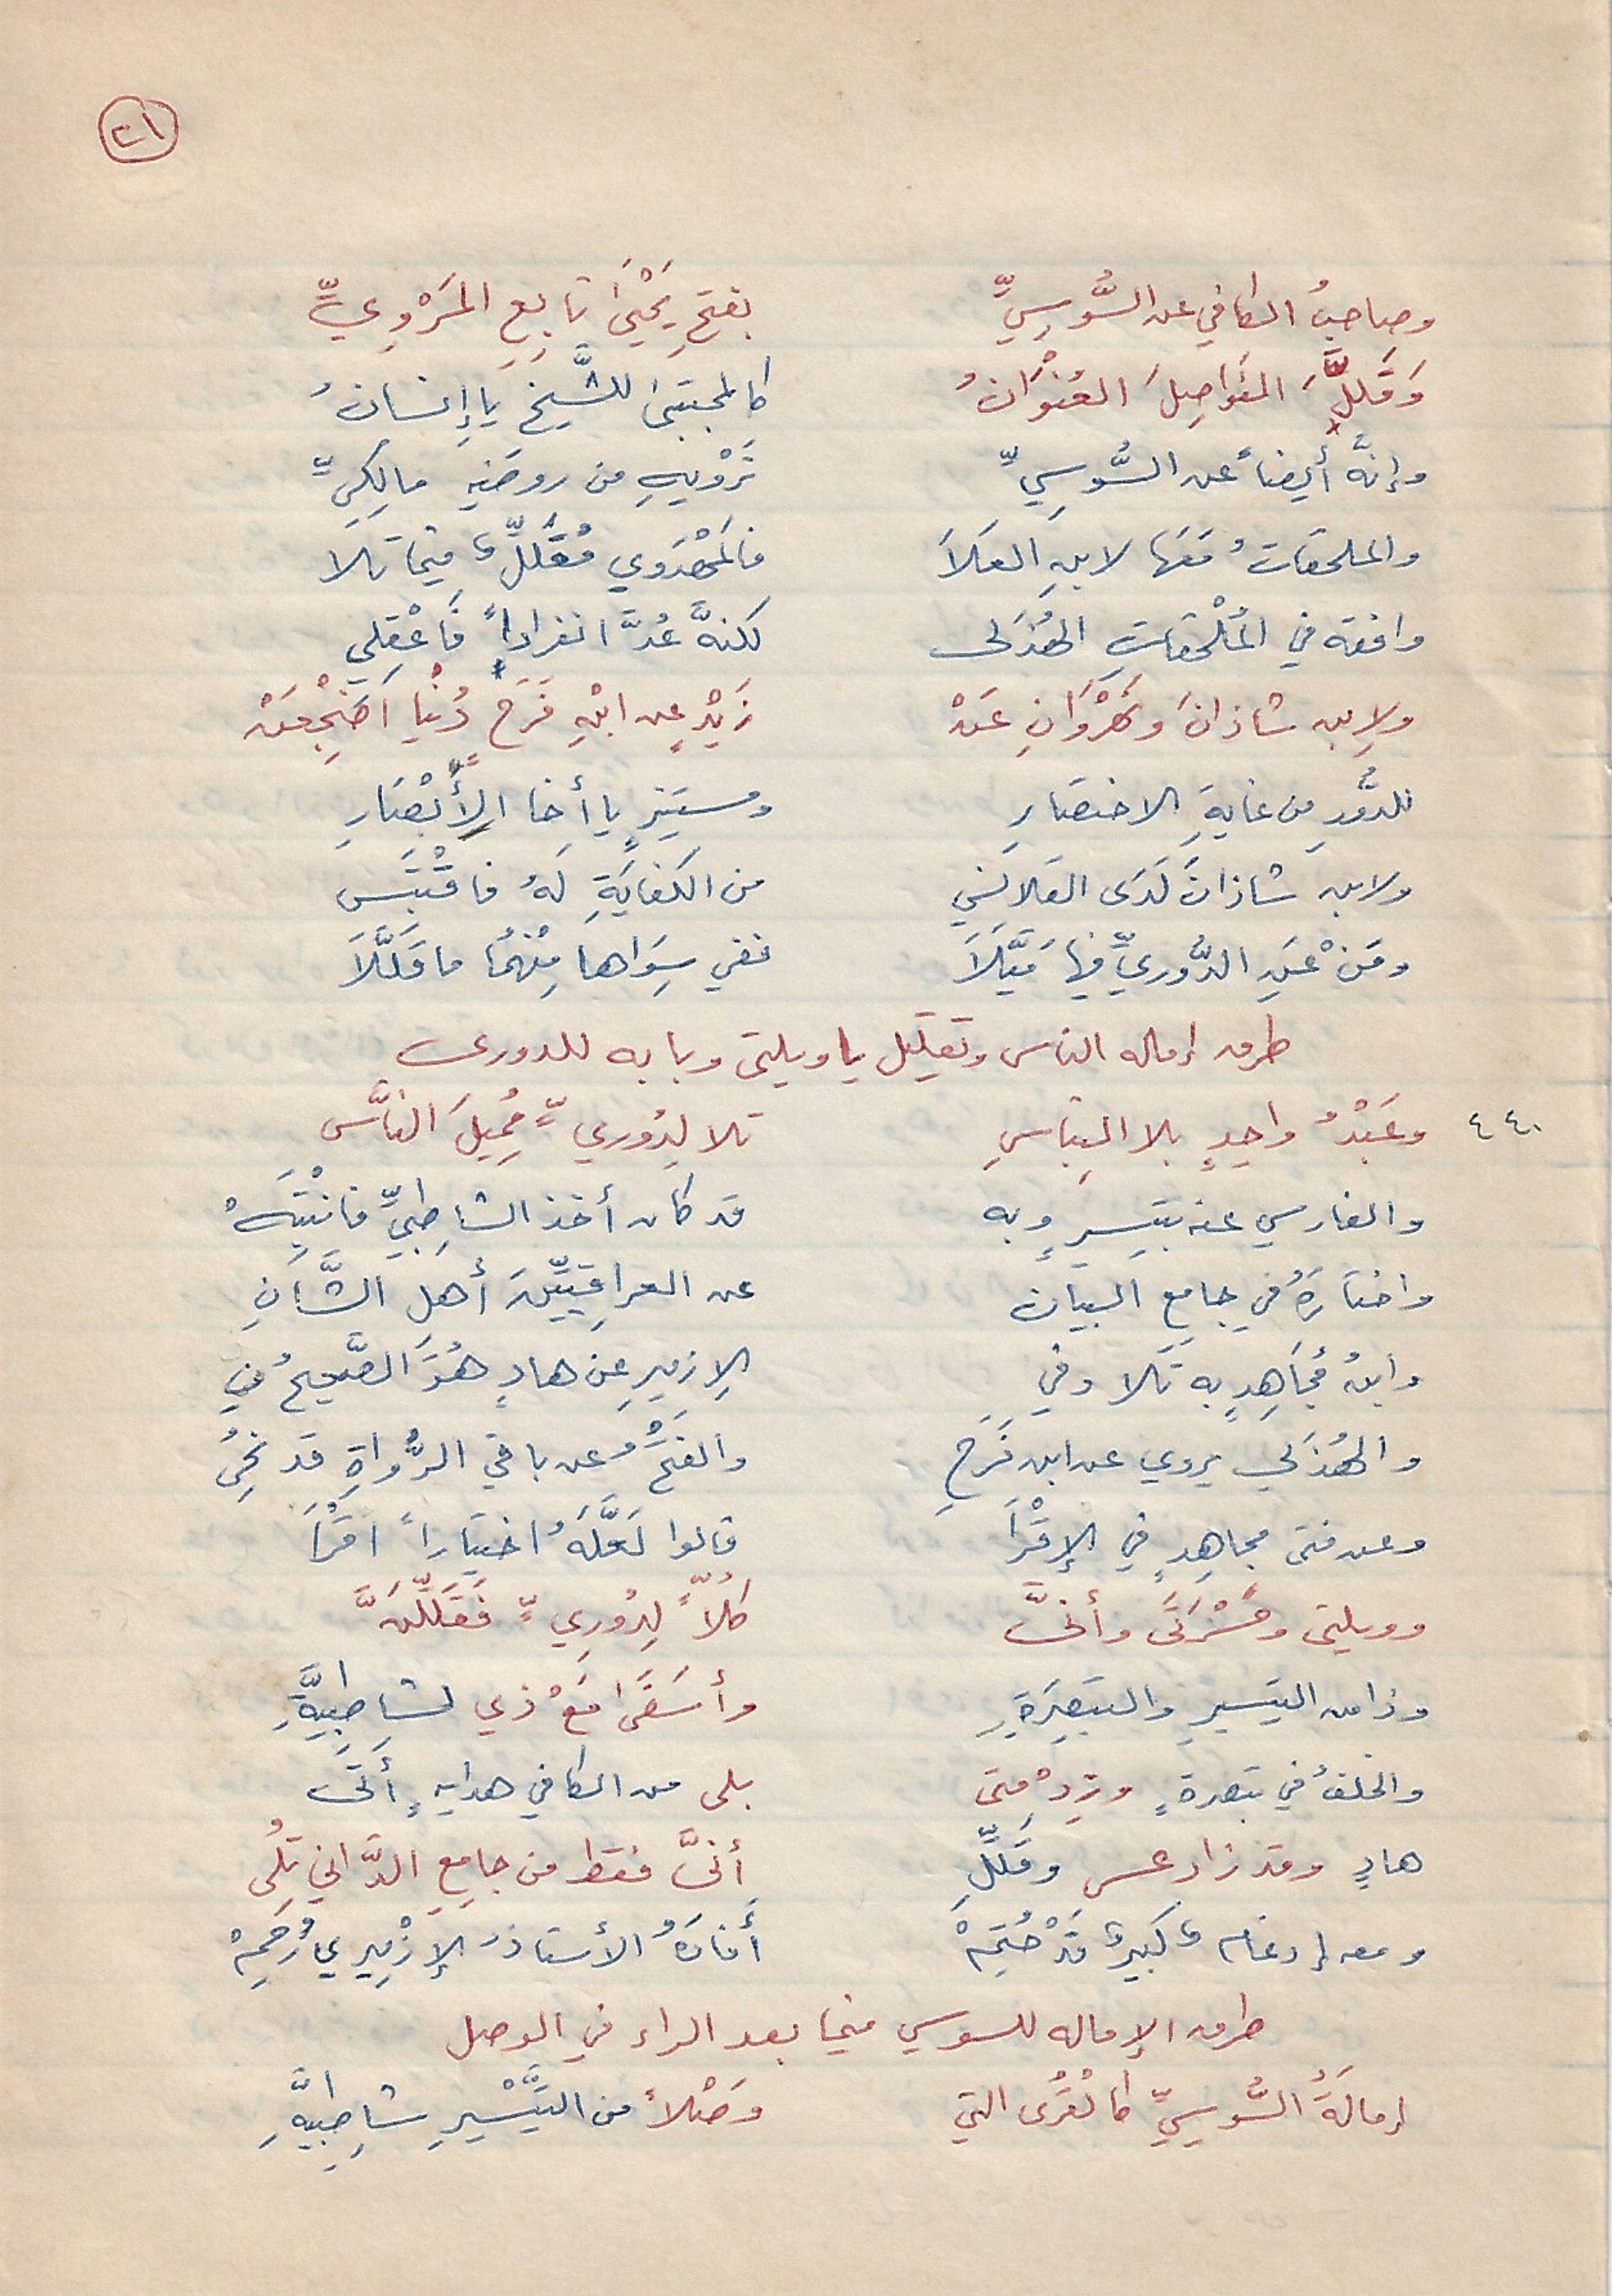 ٢١
وصاحبُ الكافي عن السُّوسِيِّ بفتحِ يَحْيَىٰ تابِعِ المَرْوِيِّ
وَقَلَّلَ الفَوَاصِلَ العُنْوَانُ كالمجتبىٰ للشَّيخِ يا إنسانُ
وإنَّهُ أيضاً عن السُّوسِيِّ تَرْوِيهِ من روضَةِ مالِكِيِّ
والملحقاتُ مَعَها لابنِ العَلَا فالمَهْدَوِي مُقَلِّلٌ فيما تلا
وافقه في المُلْحَقاتِ الهُذَلي لكنهَّ عُدَّ انفراداً فَاعْقِلِي
ولابن شاذانَ ونَهْرَوَانِ عَنْ زَيْدٍ عن ابْنِ فَرَحٍ دُنْيَا أَضْجِعَنْ
للدُّورِ مِن غايةِ الاختصَارِ ومستَنِيرٍ يا أخا الأَبْصَارِ
ولابن شاذانَ لَدَى القَلَانِسِي من الكفايَةِ لَهُ فاقْتَبَسِ
ومَنْ عَنِ الدُّورِيِّ فيها مَيَّلَا ففي سِوَاها مِنْهُمَا ما قَلَّلَا
طرق إماله الناس وتقليل يا ويلتى وبابه للدوري
٤٤٠ وعَبْدُ واحِدٍ بلا التِباسِ تلا لِدُوريٍّ مُمِيلَ النَّاسِ
والفارسي عنه بتيسيرٍ وبه قد كان أخذ الشاطِبيِّ فانْتَبِهْ
واختارَهُ في جامِعِ البيان عن العراقِيِّينَ أهلِ الشَّانِ
وابنُ مُجَاهِدٍ به تَلا وفي الإزميرِ عن هادٍ هُوَ الصَّحيحُ فِي
والهُذَلي يروي عن ابن فَرَحِ والفَتْحُ عن باقي الرُّواةِ قد نُحِي
وعن فتى مجاهِدٍ في الإقْرَا قالوا لَعَلَّهُ اختيَاراً أقْرَا
وويلتى وحَسْرَتَى وأنَّى كُلّاً لِدُورِيٍّ فَقَلِّلَنَّ
وذا من التيسيرِ والتبصِرَةِ وأسَفَى مَعْ ذي لشاطِبِيَّةِ
والخلفُ في تبصرةٍ وزِدْ متى بلى من الكافي هدايةٍ أتَى
هادٍ وقد زاد عسى وقَلِّلِ أنَّى فقط من جامِعِ الدَّاني تُلِي
ومعه إدغامٌ كبيرٌ قَدْ حُتِمْ أفادَهُ الأستاذُ الإزْمِيري رُحِمْ
طرق الإماله للسوسي فيما بعد الراء في الوصل
إمالَةُ السُّوسِيِّ كالقُرَى التي وَصْلاً من التَّيْسيرِ شاطِبِيَّةِ